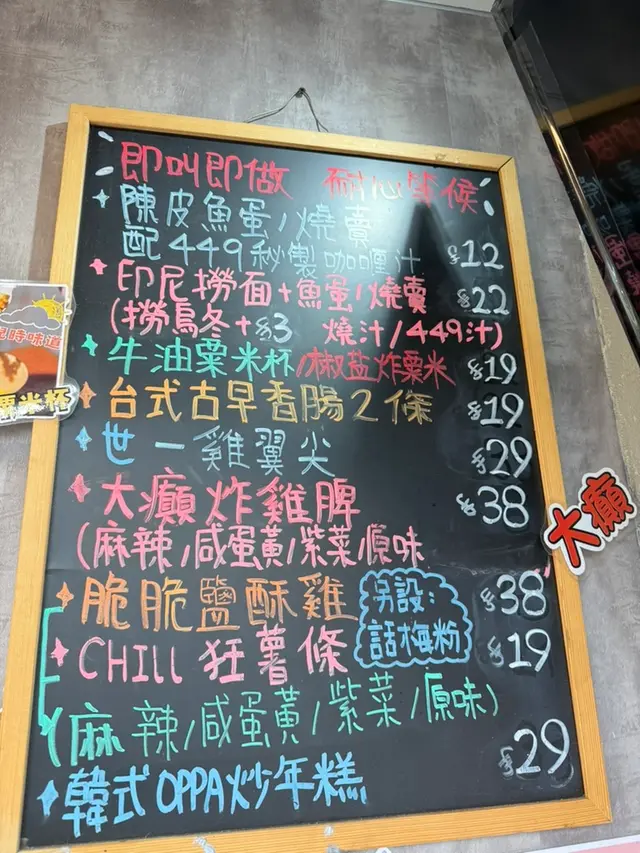 即叫即做 耐心等候
陳皮魚蛋/燒賣
配449秘製咖喱汁 $12
印尼撈面+魚蛋/燒賣 $22
(撈烏冬+$3 燒汁/449汁)
牛油粟米杯/椒盐炸粟米 $19
台式古早香腸2條 $19
世一雞翼尖 $29
大癲炸雞脾 $38
(麻辣/咸蛋黃/紫菜/原味
脆脆鹽酥雞 $38
另設:
話梅粉
CHILL 狂薯條 $19
(麻辣/咸蛋黃/紫菜/原味)
韓式OPPA炒年糕 $29
大癲
時味道
粟米杯